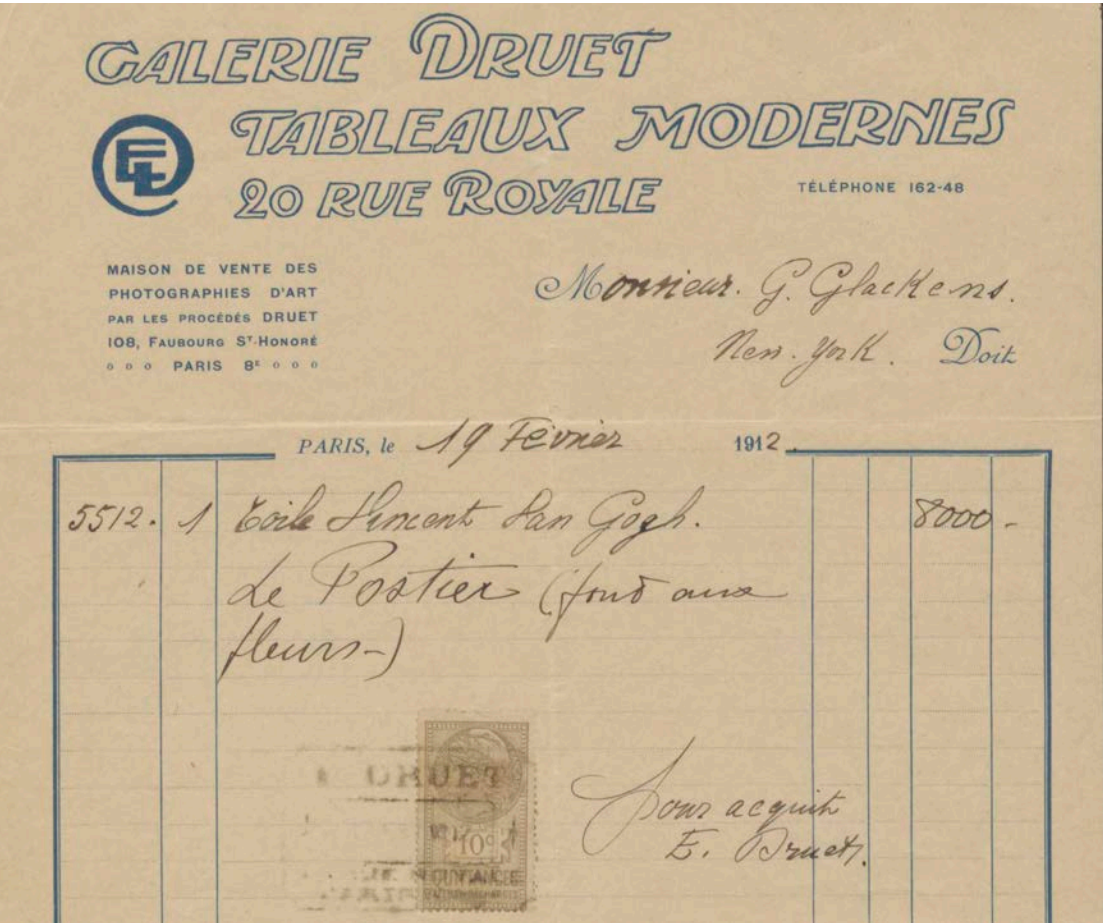 GALERIE DRUET
TABLEAUX MODERNES
20 RUE ROYALE
TÉLÉPHONE 162-48
MAISON DE VENTE DES
PHOTOGRAPHIES D'ART
PAR LES PROCÉDÉS DRUET
108, FAUBOURG ST-HONORÉ
PARIS 8E
Monsieur. G. Glackens.
New. York. Doit
PARIS, le 19 Février 1912.
5512. 1 Toile Vincent Van Gogh. 8000 -
Le Postier (fond aux
fleurs-)
DRUET
10c
QUITTANCES
Pour acquit
E. Druet.